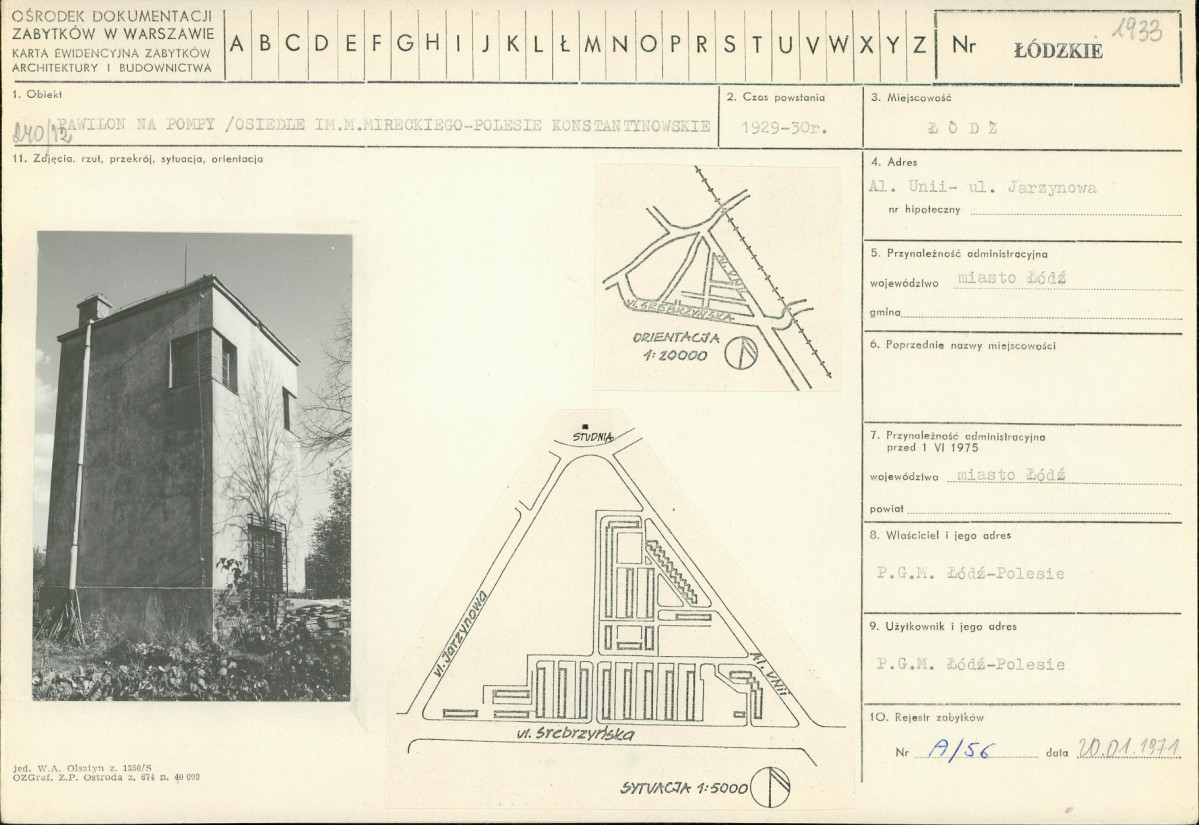 OŚRODEK DOKUMENTACJI
ZABYTKÓW W WARSZAWIE
KARTA EWIDENCYJNA ZABYTKÓW
ARCHITEKTURY I BUDOWNICTWA
A B C D E F G H I J K L Ł M N O P R S T U V W X Y Z
Nr ŁÓDZKIE 1933
1. Obiekt
240/12 PAWILON NA POMPY /OSIEDLE IM.M.MIRECKIEGO-POLESIE KONSTANTYNOWSKIE
2. Czas powstania
1929-30r.
3. Miejscowość
Ł O D Ź
11. Zdjęcia. rzut, przekrój, sytuacja, orientacja
AL. UNII
UL. SREBRZYŃSKA
ORIENTACJA
1:20000
STUDNIA
ul. Jarzynowa
AL. UNII
ul. Srebrzyńska
SYTUACJA 1:5000
4. Adres
Al. Unii- ul. Jarzynowa
nr hipoteczny
5. Przynależność administracyjna
województwo miasto Łódź
gmina
6. Poprzednie nazwy miejscowości
7. Przynależność administracyjna
przed 1 VI 1975
województwo miasto Łódź
powiat
8. Właściciel i jego adres
P.G.M. Łódź-Polesie
9. Użytkownik i jego adres
P.G.M. Łódź-Polesie
10. Rejestr zabytków
Nr A/56 data 20.01.1971
jed. W.A. Olsztyn z. 1350/S
OZGraf. Z.P. Ostroda z. 674 n. 40 000